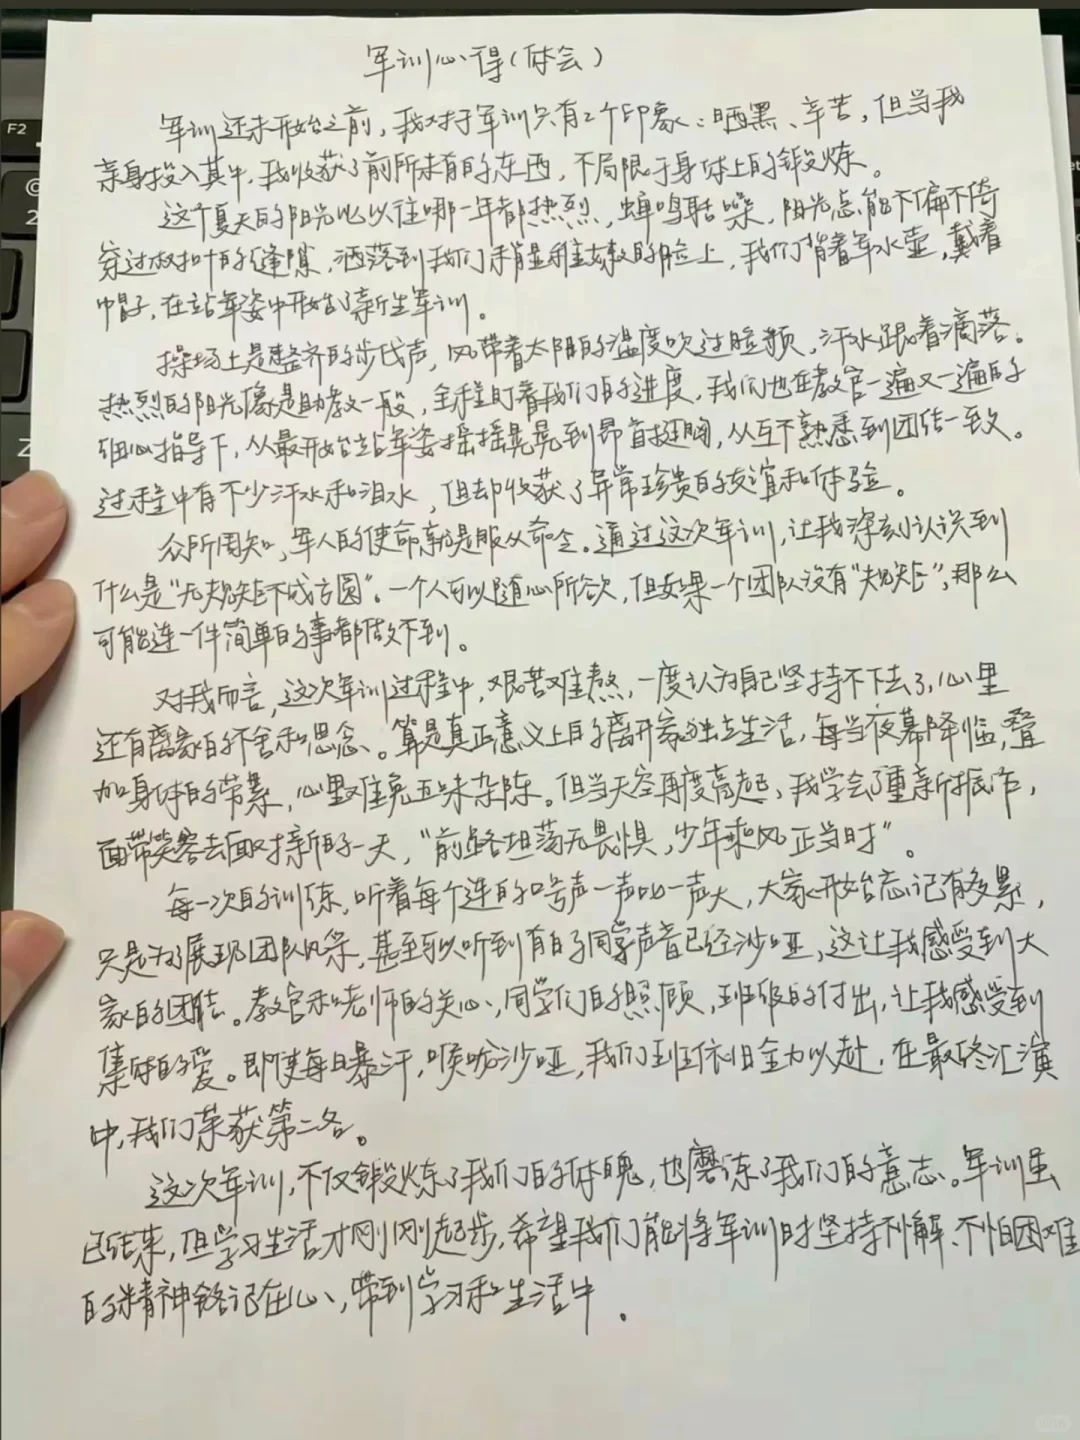 军训心得(体会)
军训还未开始之前,我对于军训只有2个印象:晒黑、辛苦,但当我
亲身投入其中,我收获了前所未有的东西,不局限于身体上的锻炼。
这个夏天的阳光比以往哪一年都热烈,蝉鸣聒噪,阳光总能不偏不倚
穿过树叶的缝隙,洒落到我们稍显稚嫩的脸上,我们背着军水壶,戴着
帽子,在站军姿中开始了新生军训。
操场上是整齐的步伐声,风带着太阳的温度吹过脸颊,汗水跟着滴落。
热烈的阳光像是助教一般,全程盯着我们的进度,我们也在教官一遍又一遍的
细心指导下,从最开始站军姿摇摇晃晃到昂首挺胸,从互不熟悉到团结一致。
过程中有不少汗水和泪水,但却收获了异常珍贵的友谊和体验。
众所周知,军人的使命就是服从命令。通过这次军训,让我深刻认识到
什么是“无规矩不成方圆”。一个人可以随心所欲,但如果一个团队没有“规矩”,那么
可能连一件简单的事都做不到。
对我而言,这次军训过程中,艰苦难熬,一度认为自己坚持不下去了,心里
还有离家的不舍和思念。算是真正意义上的离开家独立生活,每当夜幕降临,叠
加身体的劳累,心里难免五味杂陈。但当天空再度亮起,我学会了重新振作,
面带笑容去面对接新的一天,“前路坦荡无畏惧,少年乘风正当时”。
每一次的训练,听着每个连的口号声一声比一声大,大家开始忘记有多累,
只是为了展现团队风采,甚至可以听到有的同学声音已经沙哑,这让我感受到大
家的团结。教官和老师的关心,同学们的照顾,班级的付出,让我感受到
集体的爱。即使每日暴汗,喉咙沙哑,我们班依旧全力以赴,在最终汇演
中,我们荣获第二名。
这次军训,不仅锻炼了我们的体魄,也磨练了我们的意志。军训虽
已结束,但学习生活才刚刚起步,希望我们能将军训时坚持不懈、不怕困难
的精神铭记在心,带到学习和生活中。
F2
2
Z